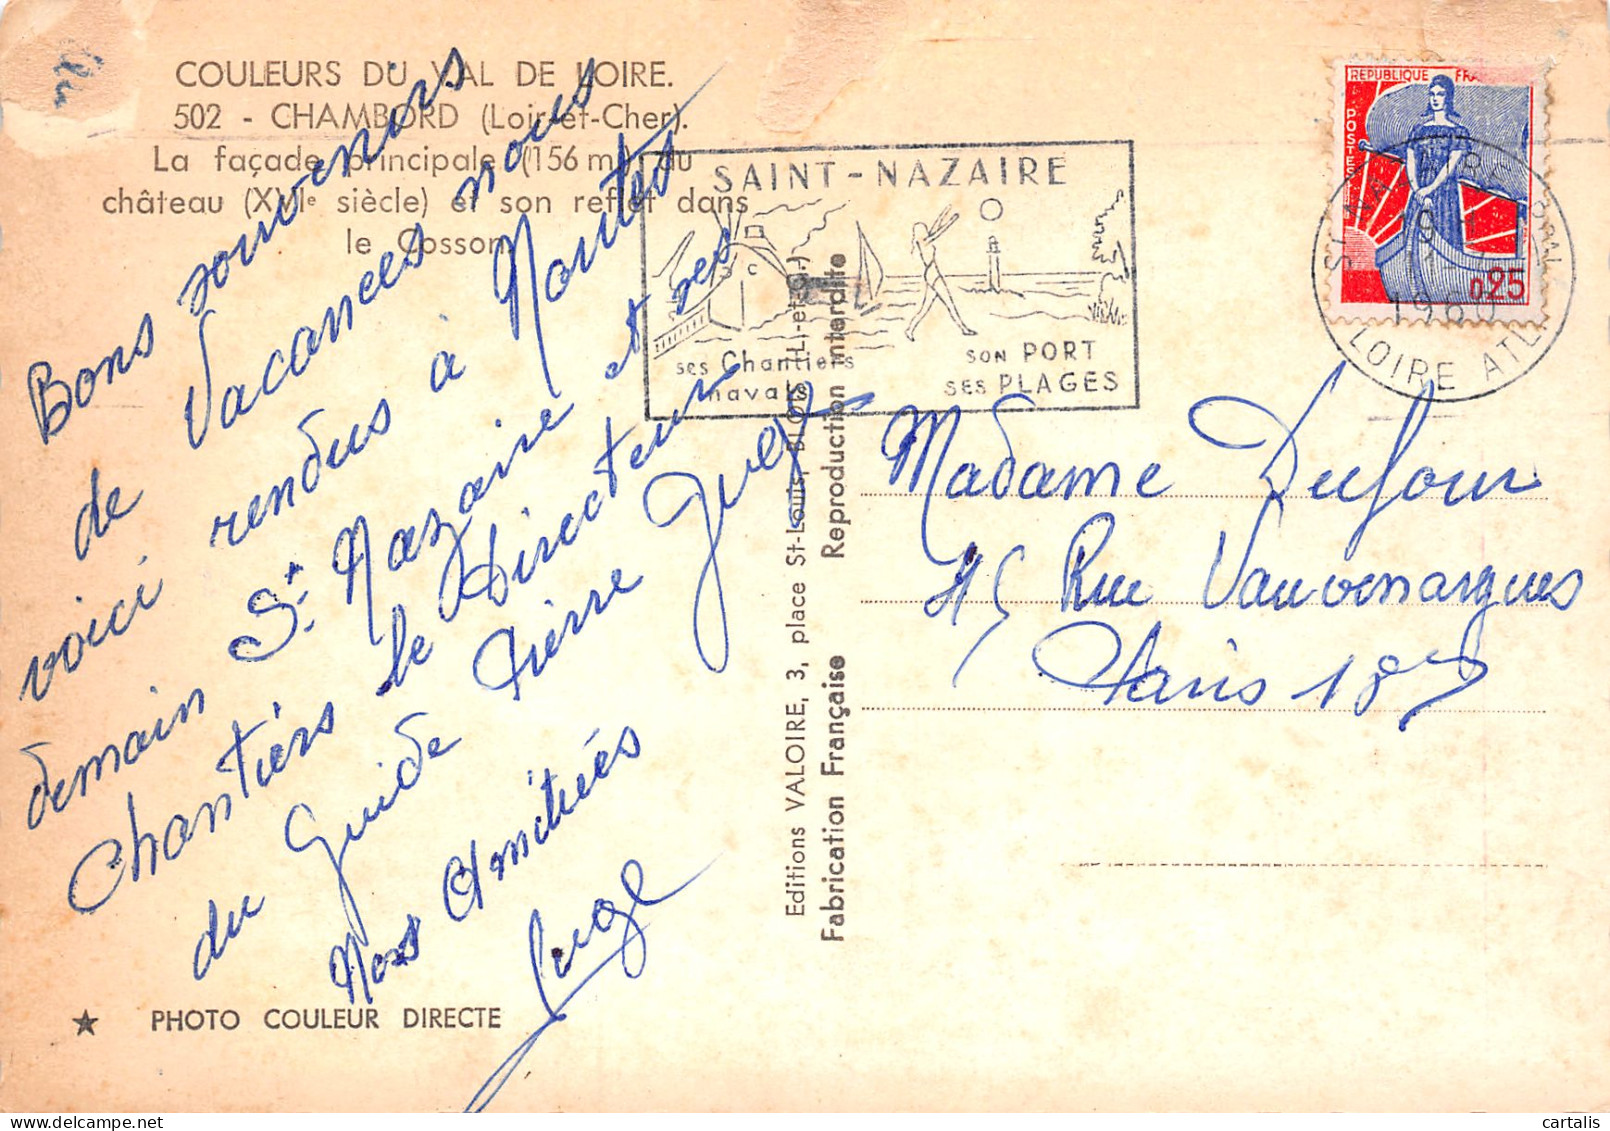 COULEURS DU VAL DE LOIRE.
502 - CHAMBORD (Loir-et-Cher).
La façade principale (156 m) du
château (XVIe siècle) et son reflet dans
le Cosson.
Bons souvenirs
de Vacances nous
voici rendus à Nantes
demain St Nazaire et ses
Chantiers le Directeur
du Guide Pierre
Nos Amitiés
★ PHOTO COULEUR DIRECTE
Editions VALOIRE, 3, place St-Louis, BLOIS (L.-et-C.)
Fabrication Française Reproduction interdite
SAINT-NAZAIRE
ses Chantiers
navals
SON PORT
SES PLAGES
REPUBLIQUE FRA
POSTES
0,25
1960
LOIRE ATL
Madame Dufour
Rue Vauvenargues
Paris 18
cartalis